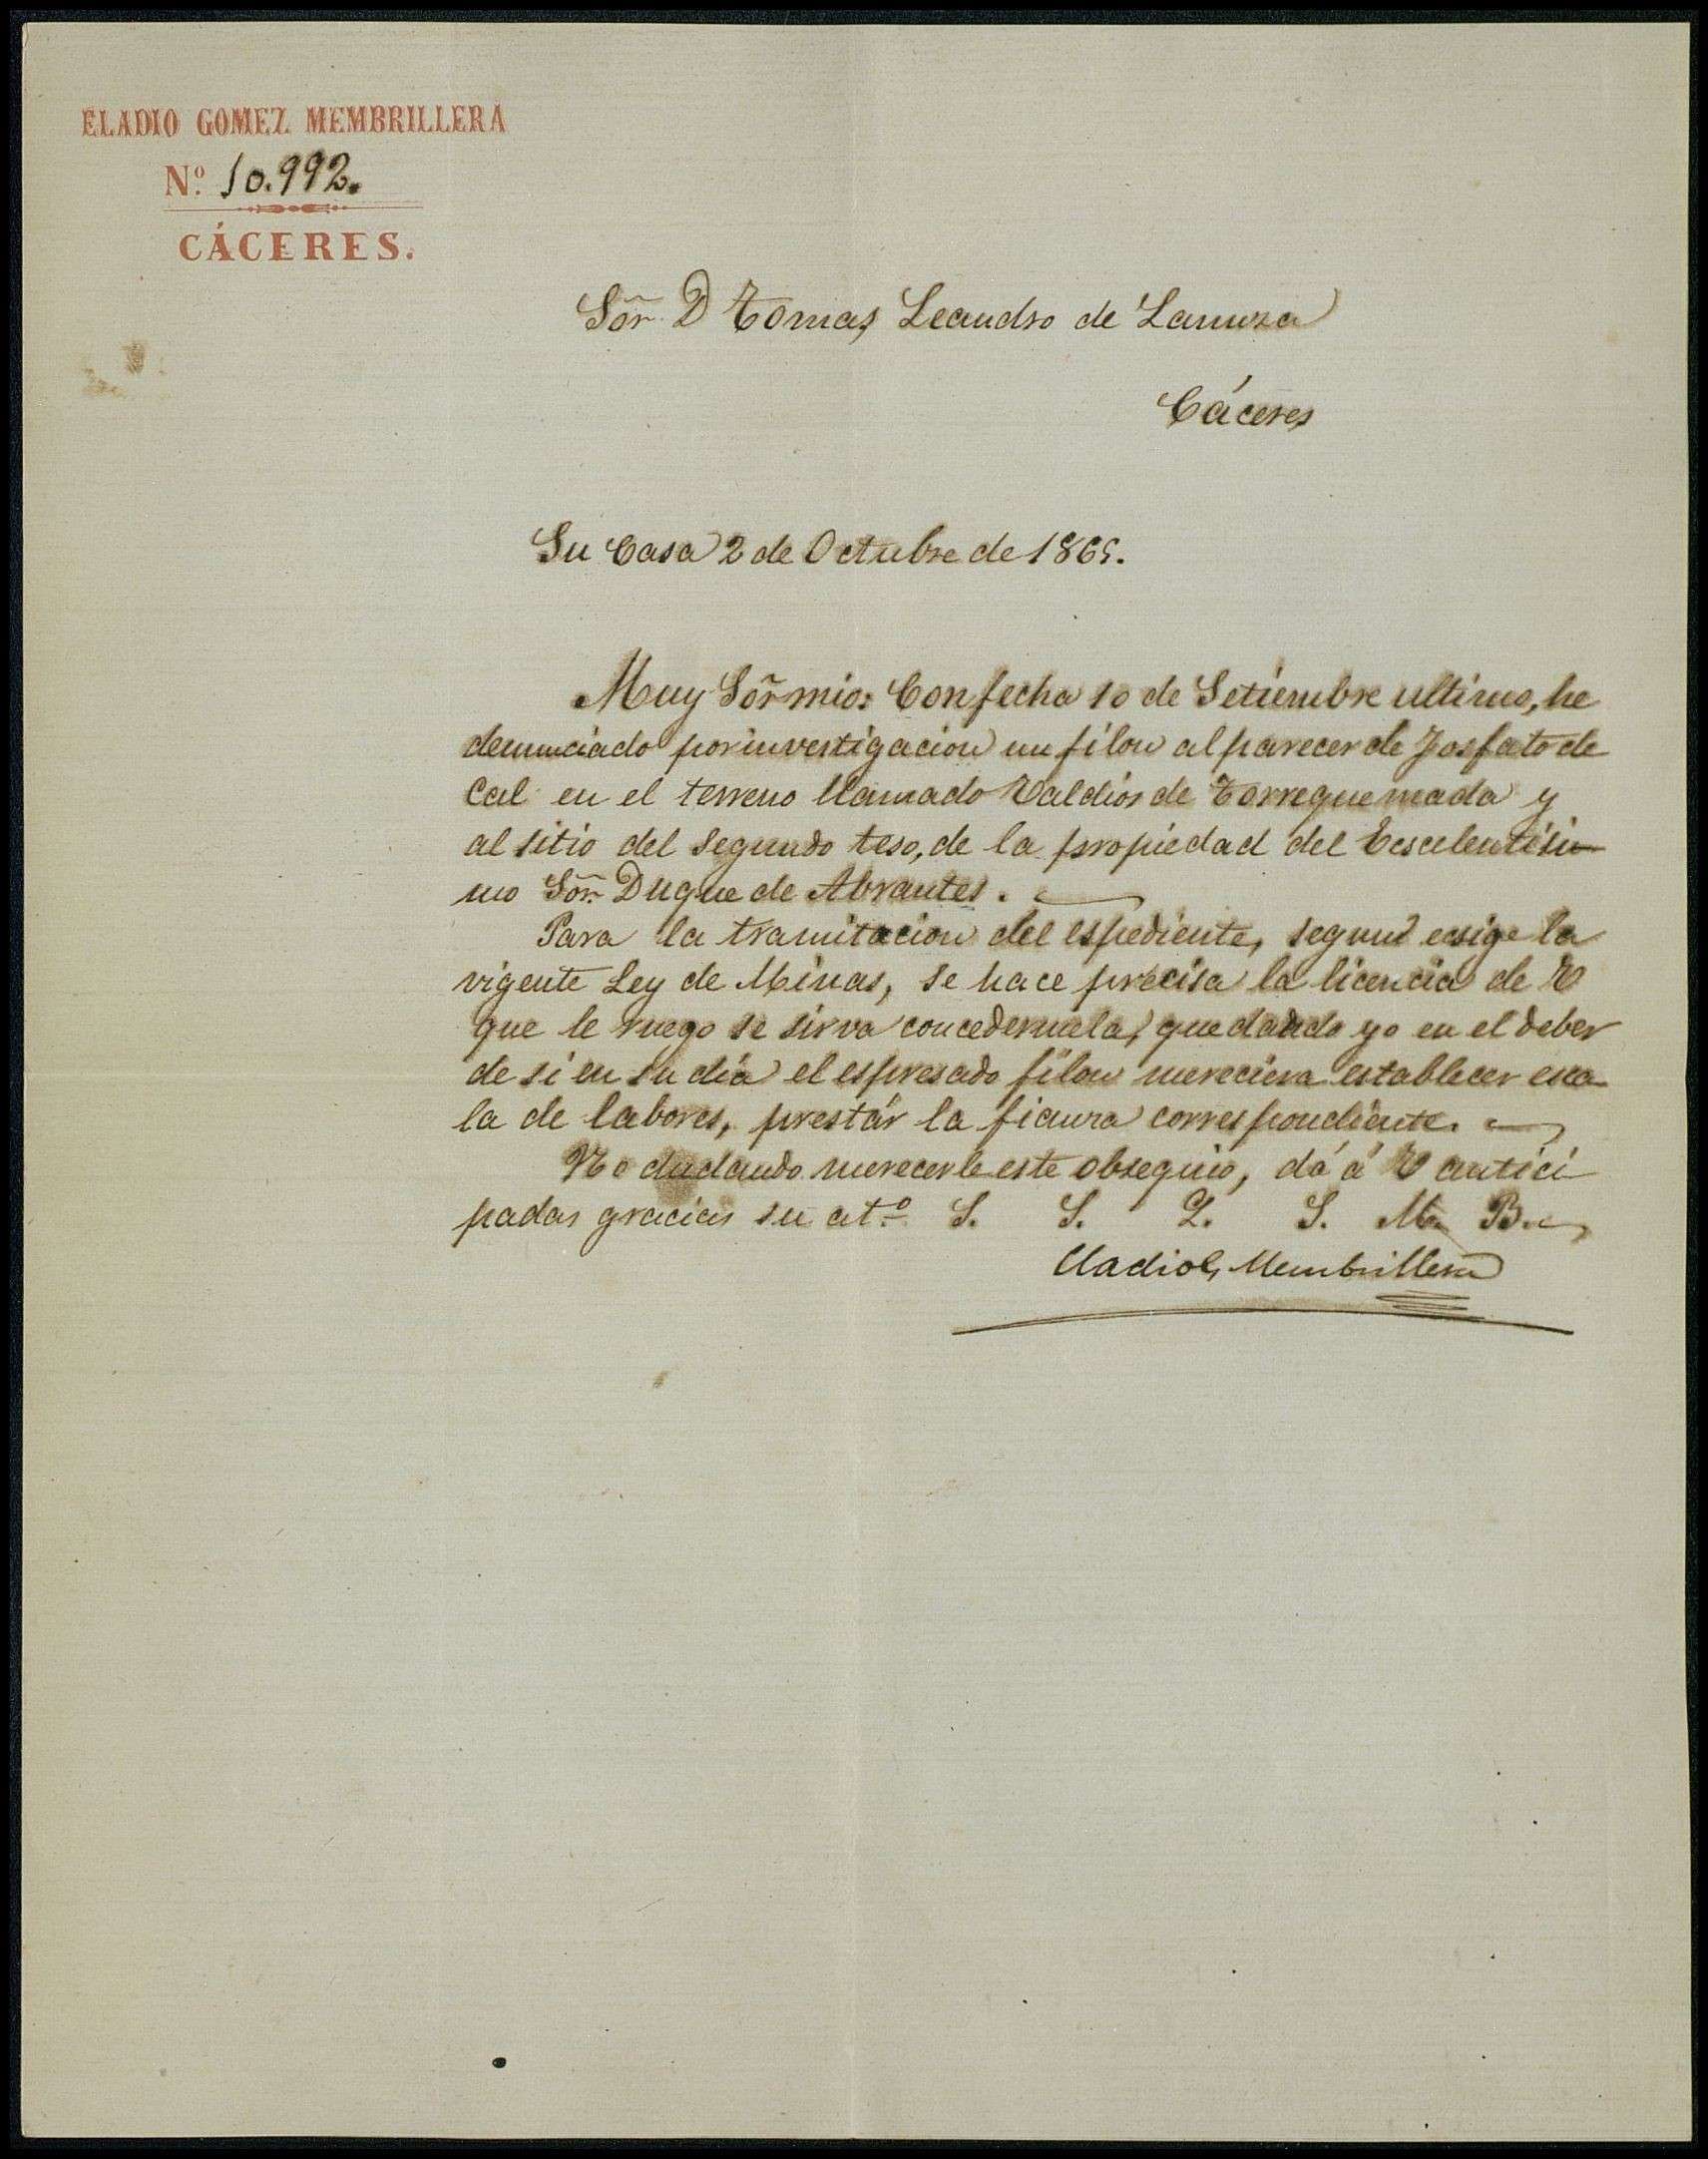 ELADIO GOMEZ MEMBRILLERA
Nº. 10.992.
CÁCERES.
Sõr. D Tomas Leandro de Lanuza
Cáceres
Su Casa 2 de Octubre de 1865.
Muy Sõr mio: Con fecha 10 de Setiembre ultimo, he
denunciado por investigacion un filon al parecer de fosfato de
Cal en el terreno llamado Valdios de Torrequemada y
al sitio del segundo teso, de la propiedad del Escelentisi-
mo Sõr. Duque de Abrantes.
Para la tramitacion del espediente, segun ecsige la
vigente Ley de Minas, se hace precisa la licencia de V
que le ruego se sirva concedermela, quedando yo en el deber
de si en su dia el espresado filon mereciera establecer esca-
la de labores, prestár la fianza correspondiente.
No dudando merecerle este obsequio, dá á V antici-
padas gracias su at.º S. S. Q. S. M. B.
Eladio G. Membrillera